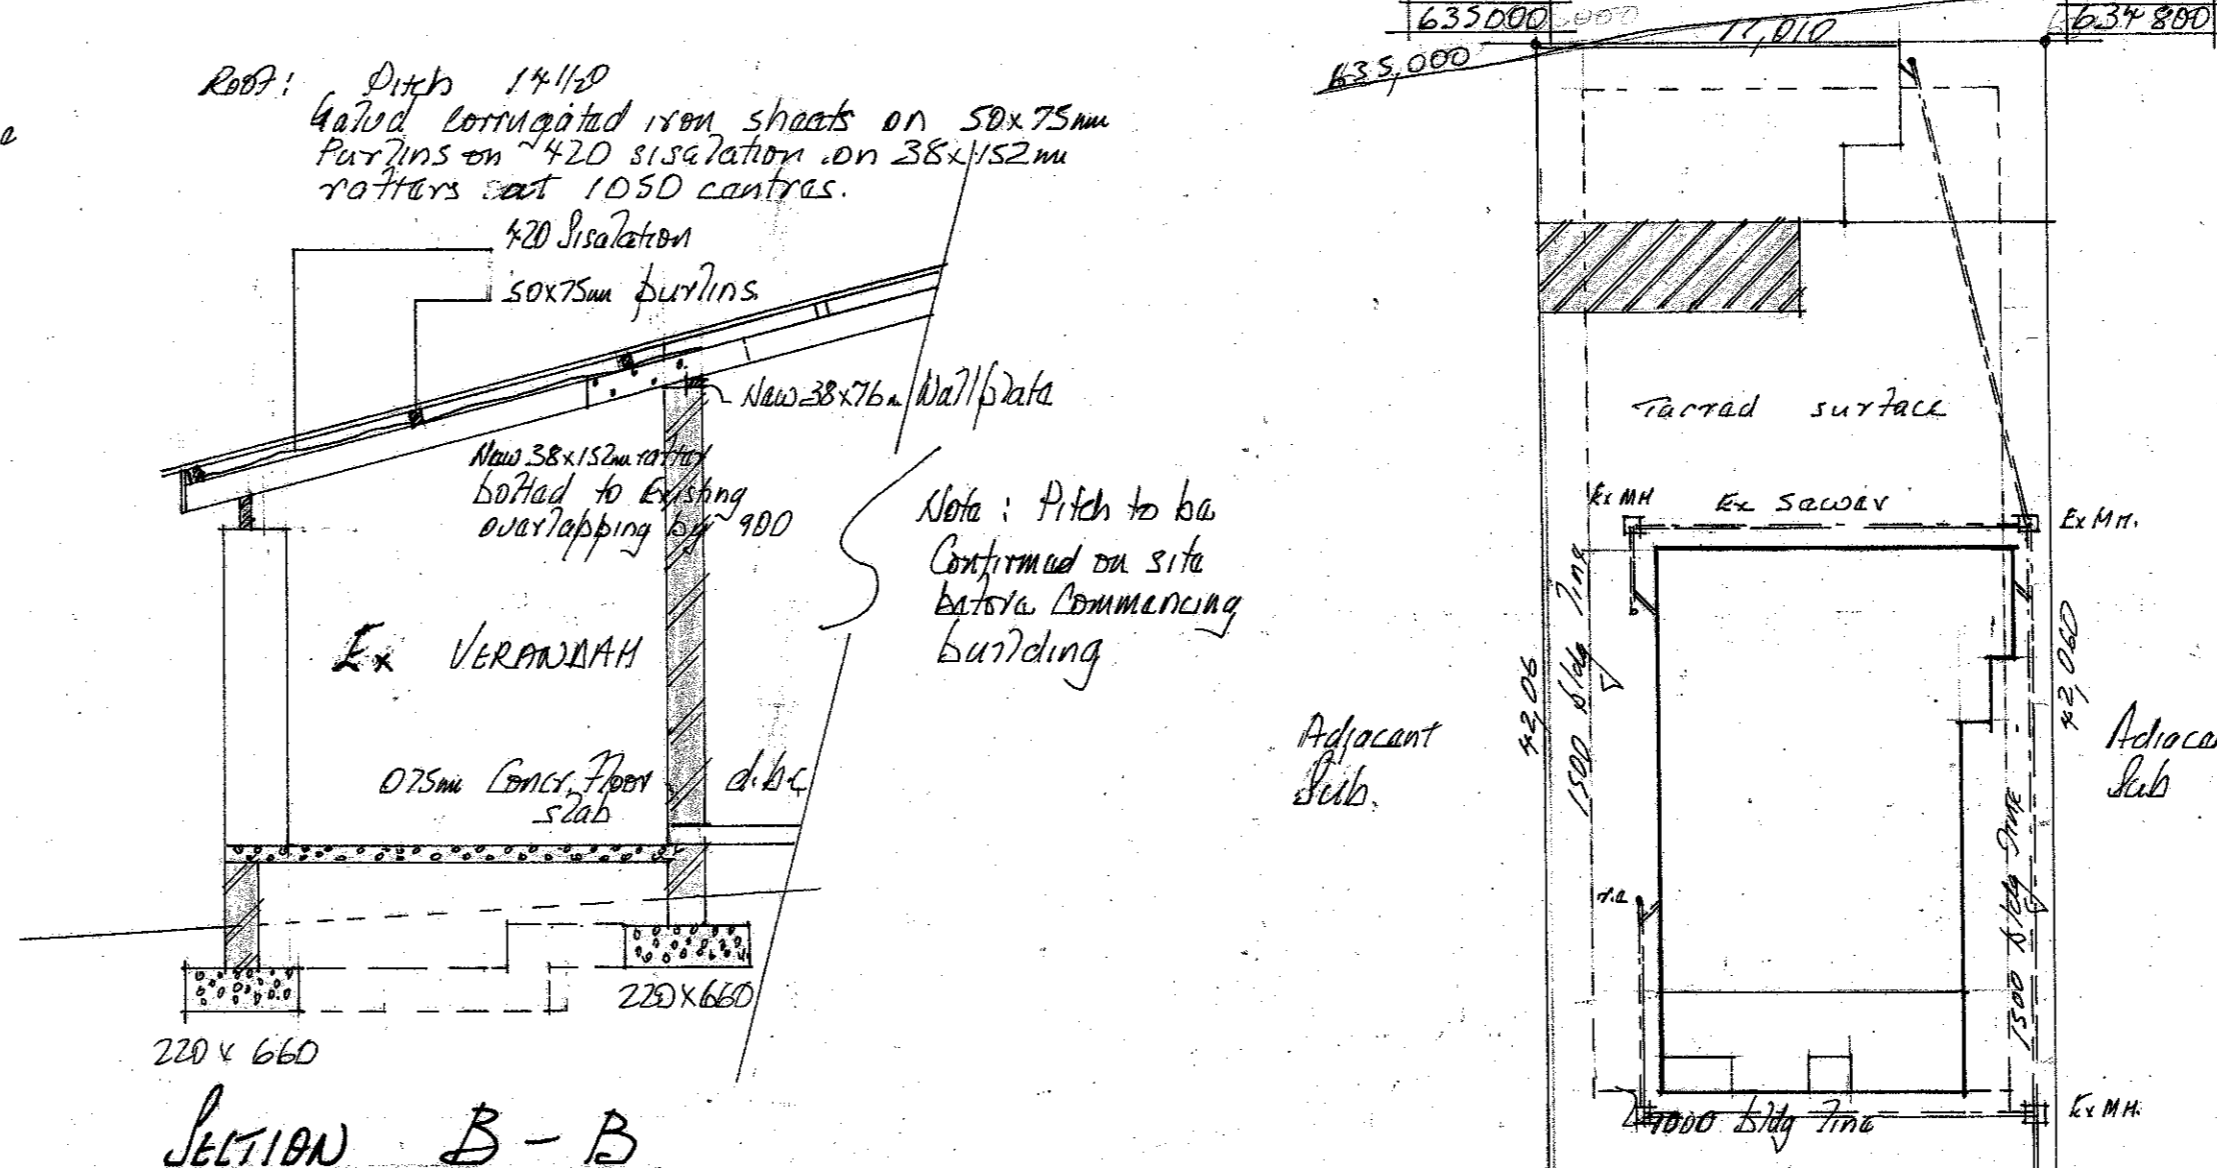 Roof: Pitch 14½°
Galvd corrugated iron sheets on 50x75mm
Purlins on 420 sisalation on 38x152mm
rafters at 1050 centres.
420 Sisalation
50x75mm purlins
New 38x76m Wall plate
New 38x152mm rafter
bolted to Existing
overlapping by 900
Note: Pitch to be
Confirmed on site
before Commencing
building
Ex VERANDAH
075mm Concr. Floor
slab
d.p.c
220x660
220 x 660
SECTION B - B
635000
634 800
17,010
635,000
Tarred surface
Ex MH
Ex sewer
Ex MH.
1500 bldg line
42,06
42,060
Adjacent
Sub.
Adjace
Sub
1500 bldg line
bldg line
Ex MH.